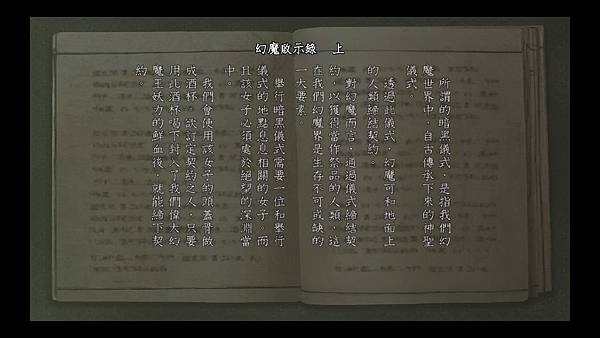 幻魔啟示錄　上
所謂的暗黑儀式，是指我們幻
魔世界中，自古傳承下來的神聖
儀式。
透過此儀式，幻魔可和地面上
的人類締結契約。
對幻魔而言，通過儀式締結契
約，以獲得當作祭品的人類，這
在我們幻魔界是生存不可或缺的
一大要素。
舉行暗黑儀式需要一位和舉行
儀式的地點息息相關的女子。而
且該女子必須處於絕望的深淵當
中。
我們會使用該女子的頭蓋骨做
成酒杯。欲訂定契約之人，只要
用此酒杯喝下封入了我們偉大幻
魔王妖力的鮮血後，就能締下契
約。